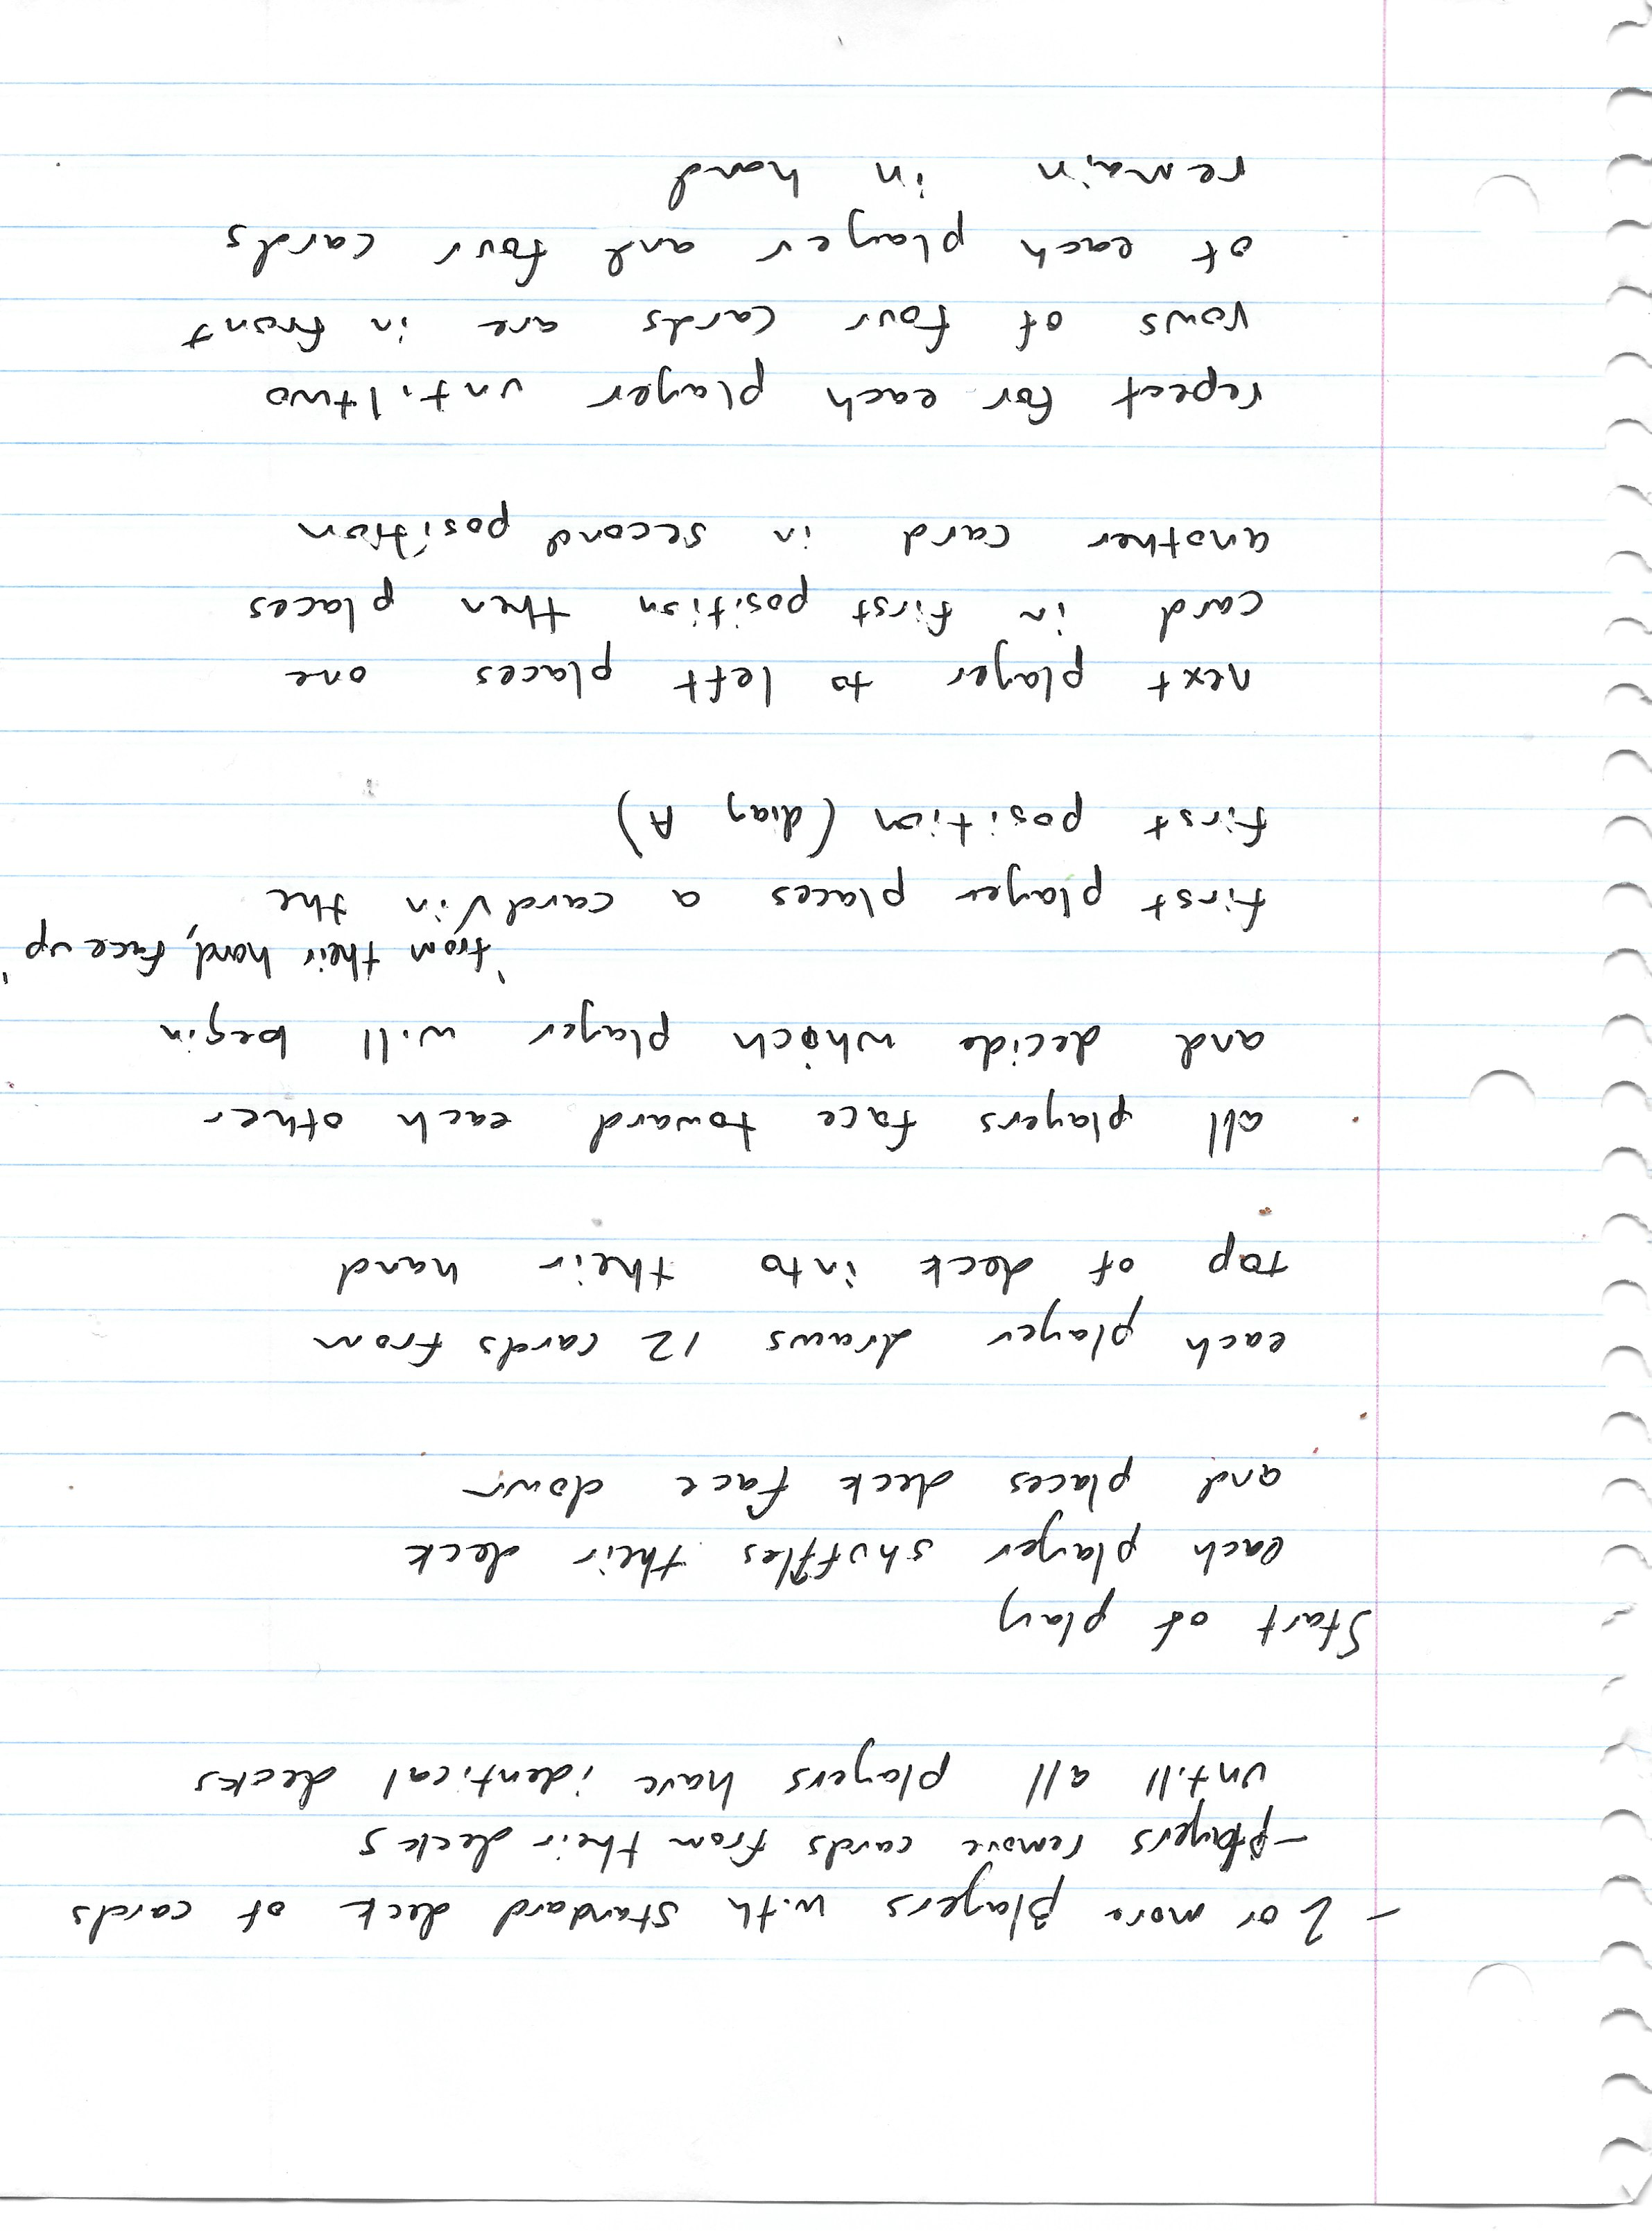 - 2 or more players with standard deck of cards
- players remove cards from their decks
untill all players have identical decks
Start of play
each player shuffles their deck
and places deck face down
each player draws 12 cards from
top of deck into their hand
all players face toward each other
and decide which player will begin
"from their hand, face up"
first player places a card in the
first position (diag A)
next player to left places one
card in first position then places
another card in second position
repeat for each player until two
rows of four cards are in front
of each player and four cards
remain in hand